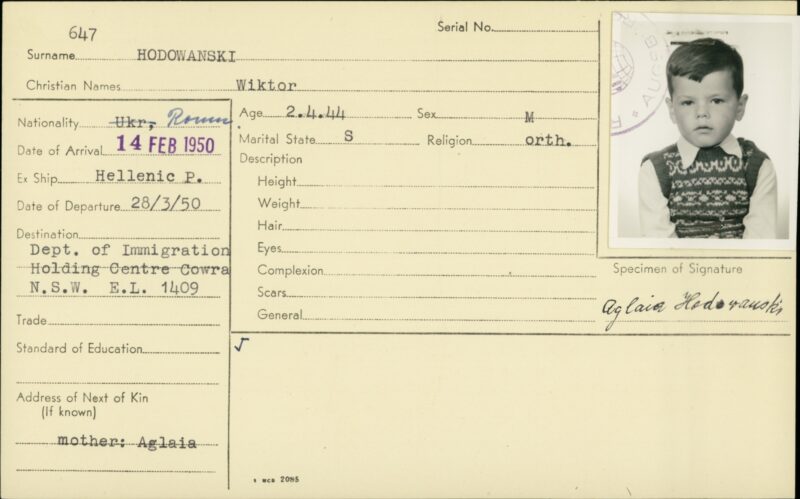 647
Serial No.
Surname HODOWANSKI
Christian Names Wiktor
Nationality Ukr, Roum
Age 2.4.44 Sex M
Date of Arrival 14 FEB 1950
Marital State S Religion orth.
Description
Ex Ship Hellenic P.
Height
Date of Departure 28/3/50
Weight
Destination
Hair
Dept. of Immigration
Eyes
Holding Centre Cowra
Complexion
N.S.W. E.L. 1409
Scars
Trade
General
Specimen of Signature
Aglaia Hodowanski
Standard of Education
Address of Next of Kin
(If known)
mother: Aglaia
2095